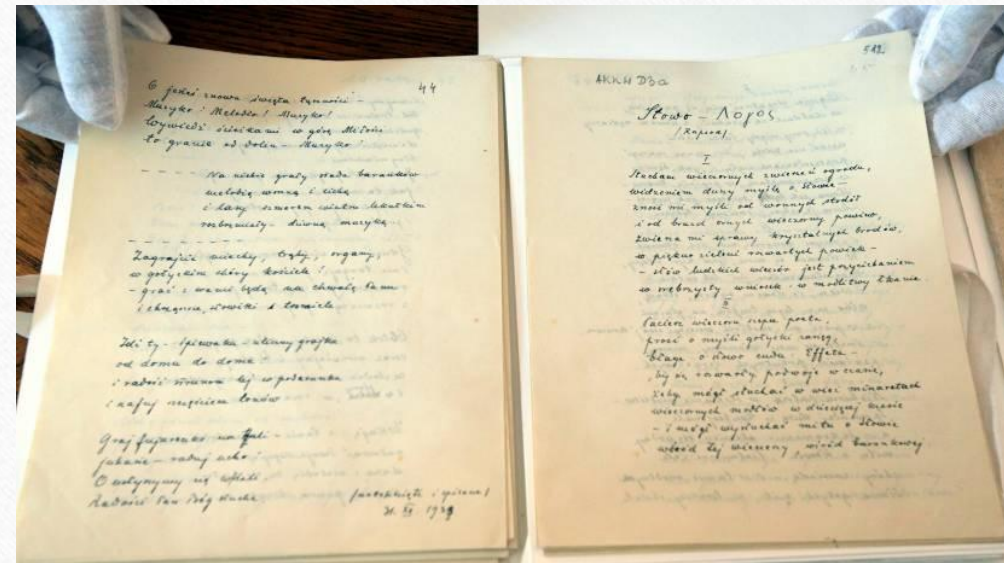 44
O jakaś znowu święta tęskności –
Muzyko! Melodio! Muzyko!
Wywiedź ścieżkami w górę Miłości
to granie od dolin – Muzyko!
Na niebie grały stada baranków
melodię wonną i cichą
i lasy szmerem wiatru lekutkim
rozbrzmiały – dziwną muzyką
Zagrajcie miechy, trąby, organy,
w gotyckim chórze kościoła!
– grać z wami będą na chwałę Panu
i słowiki i
Idź ty – śpiewaku – uliczny grajku
od domu do domu
i radość
i szczęściem tonów
Graj fujareczko na hali –
juhasie – raduj ucho!
O usłyszymy się w dali
Radości Pan Bóg słucha
/ i spisane/
1939
512.
AKKM D30
Słowo – Λογος
/Zapiera/
I
Słucham wieczornych zwierzeń ogrodu,
widzeniem duszy myślę o Słowie –
znosi mi myśli od wonnych stodół
i od bruzd ornych wieczorny powiew,
Zwierza mi sprawy krysztalnych brodów,
w piękno zieleni rozwartych powiek –
– słów ludzkich wieczór jest
w srebrzysty wniosek – w modlitwy tkanie.
II
Pacierz wieczoru szepcą poeta,
prosi o myśli gotycki
błaga o słowo cudu Effeta
by się rozwarły podwoje w czasie,
żeby mógł słuchać w wieży minaretach
wieczornych modłów w dziecięcej krasie
– i mógł wysłuchać mitu o Słowie
wśród tej wieczornej wśród barankowej